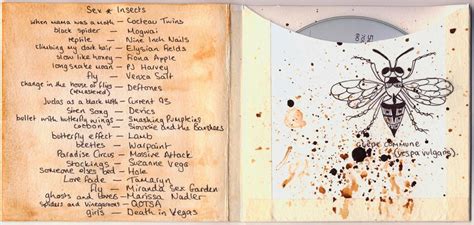 Sex * Insects
when mama was a moth - Cocteau Twins
black spider - Mogwai
reptile - Nine Inch Nails
climbing my dark hair - Elysian Fields
slow like honey - Fiona Apple
long snake moan - PJ Harvey
fly - Veruca Salt
change in the house of flies - Deftones
(remastered)
Judas as a black moth - Current 93
Siren Song - Devics
bullet with butterfly wings - Smashing Pumpkins
cocoon - Siouxsie and the Banshees
butterfly effect - Lamb
beetles - Warpaint
Paradise Circus - Massive Attack
Stockings - Suzanne Vega
Someone else's bed - Hole
Love Fade - Tamaryn
fly - Miranda Sex Garden
ghosts and lovers - Marissa Nadler
spiders and vinegaroons - QOTSA
girls - Death in Vegas
guêpe commune
(vespa vulgaris).